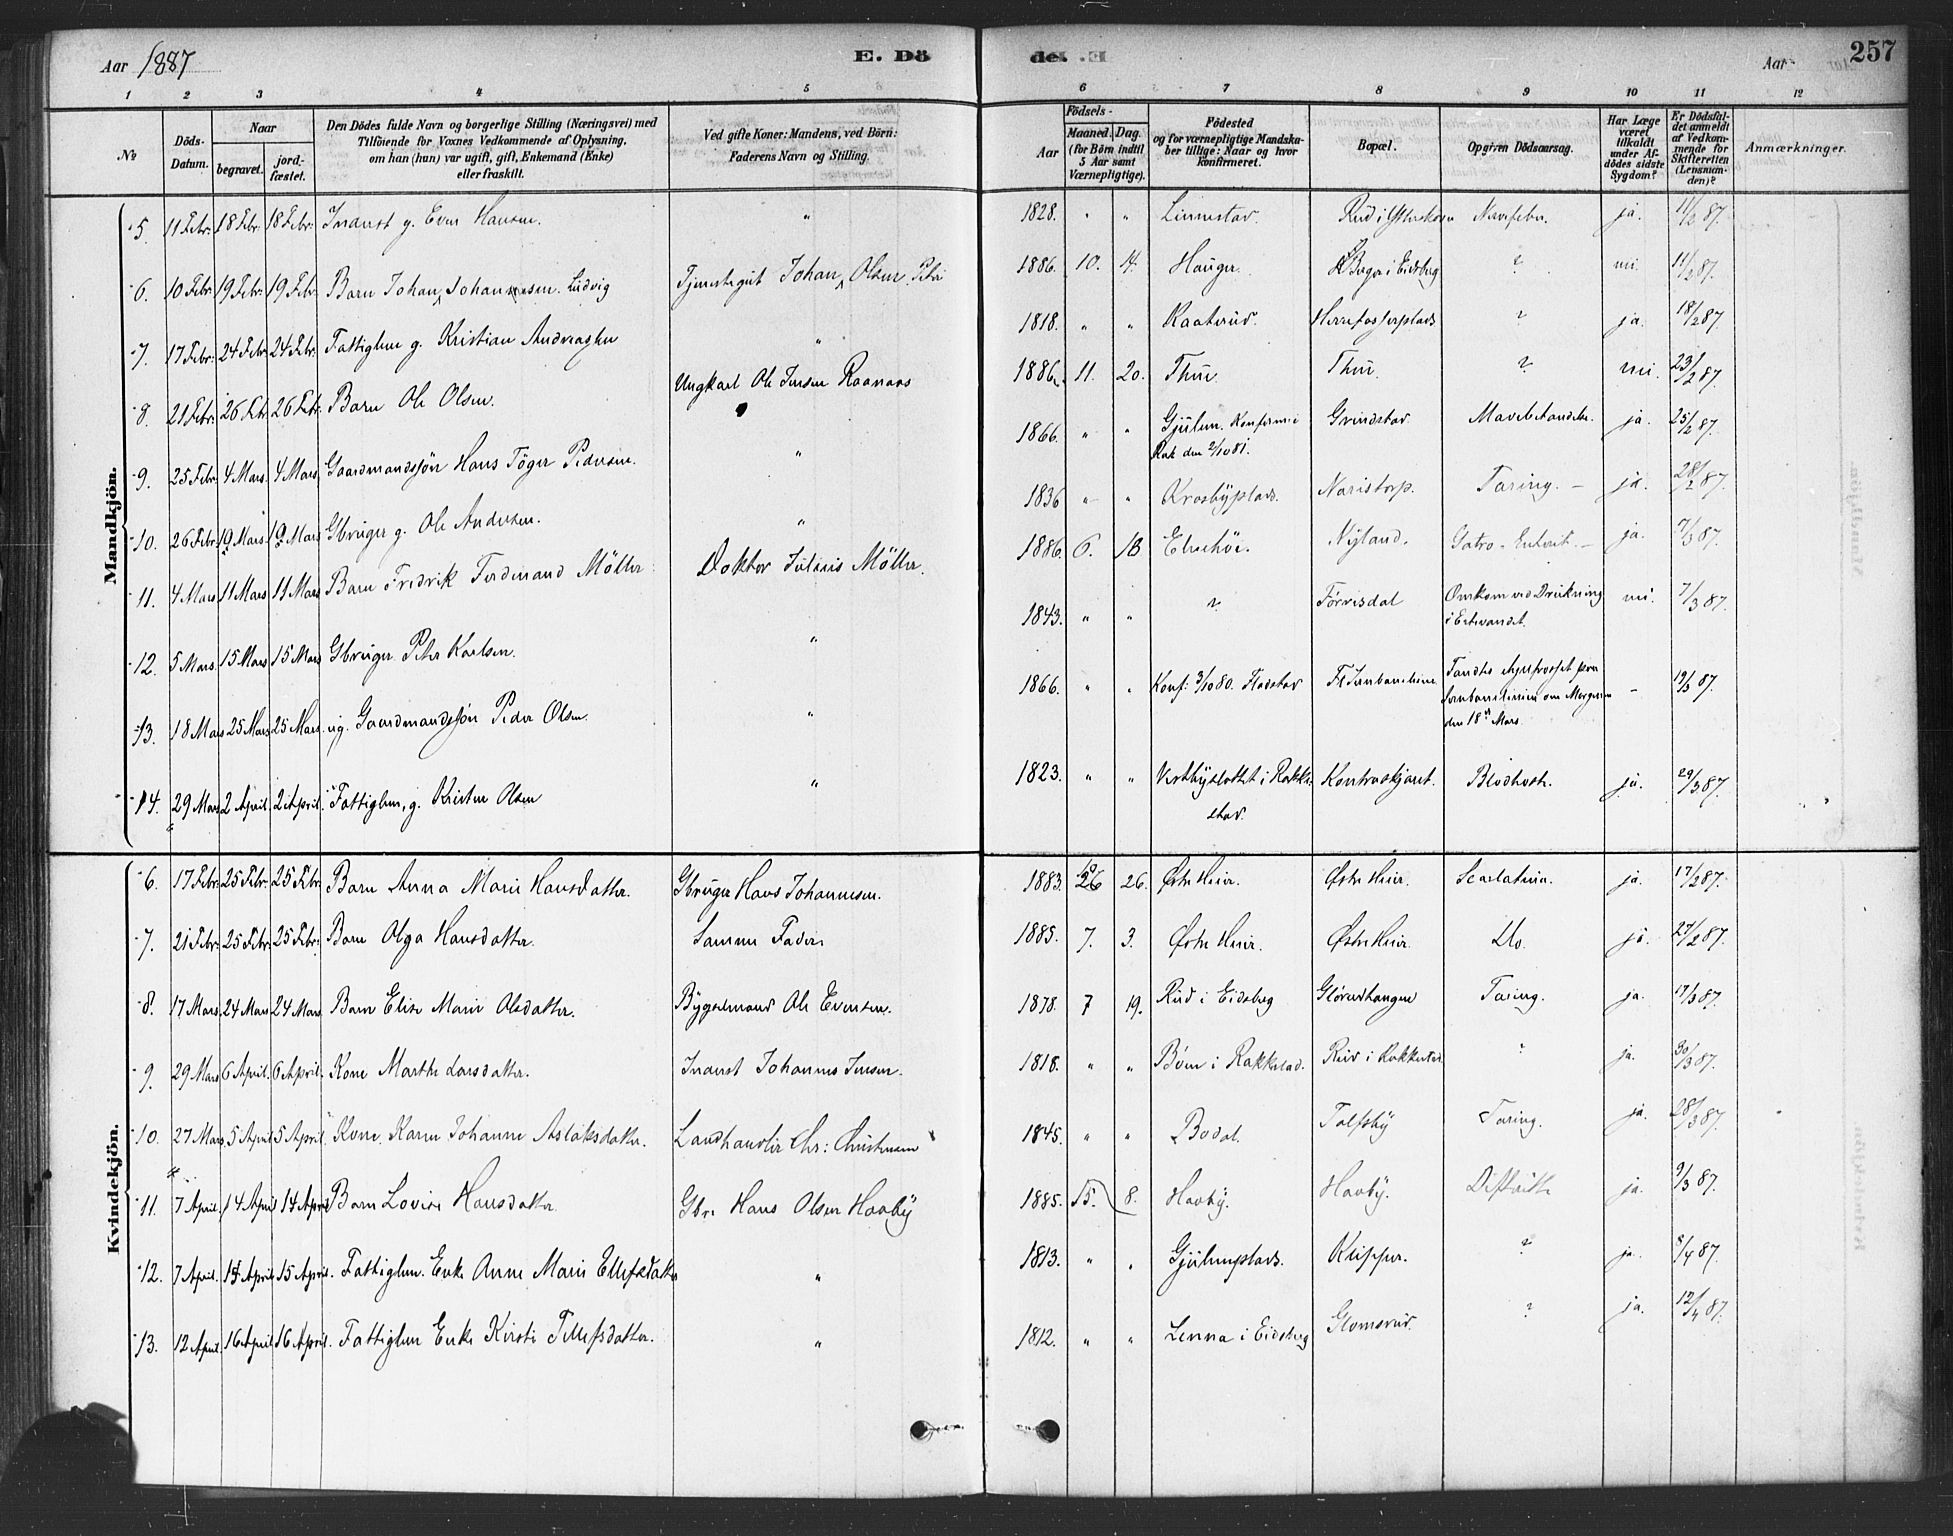 Aar 1887
E. Dö
de. E
Aar
257
1 2 3 4 5 6 7 8 9 10 11 12
№
Döds-Datum.
Naar
begravet.
jord-fæstet.
Den Dödes fulde Navn og borgerlige Stilling (Næringsvei) med
Tilföiende for Voxnes Vedkommende af Oplysning,
om han (hun) var ugift, gift, Enkemand (Enke)
eller fraskilt.
Ved gifte Koner: Mandens, ved Börn:
Faderens Navn og Stilling.
Födsels-
Aar
Maaned. Dag.
(for Börn indtil
5 Aar samt
Værnepligtige).
Födested
og for værnepligtige Mandska-
ber tillige: Naar og hvor
konfirmeret.
Bopæl.
Opgiven Dödsaarsag.
Har Læge
været
tilkaldt
under Af-
dödes sidste
Sygdom?
Er Dödsfal-
det anmeldt
af Vedkom-
mende for
Skifteretten
(Lensman-
den)?
Anmærkninger.
Mandkjön.
5. 11 Febr. 18 Febr. 18 Febr. Inderst g. Even Hansen. " 1828. " " Linnestad. Rud i Nervefeber. ja. 11/2 87.
6. 10 Febr. 19 Febr. 19 Febr. Barn Johan Johannesen. Ludvig Tjenestegut Johan Olsen Petri 1886. 10. 14. Hauger. i Eidsberg ? nei. 11/2 87.
7. 17 Febr. 24 Febr. 24 Febr. Fattiglem g. Kristian Andreassen " 1818. " " Kaaterud. ? ja. 18/2 87.
8. 21 Febr. 26 Febr. 26 Febr. Barn Ole Olsen. Ungkarl Ole Jensen Raanaas 1886. 11. 20. Thue. Thue. ? nei. 23/2 87.
9. 25 Febr. 4 Mars. 4 Mars. Gaardmandssön Hans Töger Pedersen. " 1866. " " Gjulem. Konfirm: i Rak den 2/10 81. Grindstad. ja. 25/2 87.
10. 26 Febr. 19 Mars. 19 Mars Gbruger g. Ole Andersen. " 1836 " " Krosbyplads. Naristorp. Tæring. ja. 28/2 87.
11. 4 Mars 11 Mars 11 Mars Barn Fredrik Ferdinand Möller Doktor Julius Möller. 1886. 6. 18 Elvehöi. Nyland. Gatro-Enterit. ja. 7/3 87.
12. 5 Mars. 15 Mars 15 Mars Gbruger Peter Karlsen. " 1843. " " ? Förrisdal Omkom ved Drukning i Ertevandet. nei. 7/3 87.
13. 18 Mars 25 Mars 25 Mars. ug. Gaardmandssön Peder Olsen. " 1866. " " Konf: 3/10 80. Fladstad Fandtes ihjelfrosset paa Jernbanelinien om Morgenen den 18de Mars. - 19/3 87.
14. 29 Mars 2 April. 2 April. Fattiglem, g. Kristen Olsen " 1823. " " i Rakke-stad. Kontraskjæret. Blodhoste. ja. 29/3 87.
Kvindekjön.
6. 17 Febr. 25 Febr. 25 Febr. Barn Anna Marie Hansdatter. Gbruger Hans Johannesen. 1883. 26. Östre Heier. Östre Heier. Scarlatina. ja. 17/2 87.
7. 21 Febr. 25 Febr. 25 Febr. Barn Olga Hansdatter. Samme Fader 1885. 7. 3. Östre Heier. Östre Heier. Do. ja. 21/2 87.
8. 17 Mars. 24 Mars 24 Mars. Barn Elise Marie Olsdatter. Bygselmand Ole Evensen. 1878. 7 19. Rud i Eidsberg Tæring. ja. 17/3 87.
9. 29 Mars 6 April. 6 April. Kone Marthe Larsdatter. Inderst Johannes Jensen. 1818. " " Böen i Rakkestad. Rud i Rakkestad ? ja. 30/3 87.
10. 27 Mars 5 April 5 April. Kone Karen Johanne Aslaksdatter. Landhandler Chr: Christensen 1845. " " Bodal. Tolfsby Tæring. ja. 28/3 87.
11. 7 April. 14 April 14 April Barn Lovise Hansdatter. Gbr. Hans Olsen Haaby 1885. 15. 8. Haaby. Haaby. Difterite ja. 9/3 87.
12. 7 April. 15 April 15 April. Fattiglem. Enke Anne Marie Ellefsdatter " 1813. " " Gjulemplads. ? ja. 8/4 87.
13. 12 April. 16 April 16 April. Fattiglem Enke Kirsti Tellefsdatter. " 1812. " " Lenna i Eidsberg Glomsrud. ? ja. 12/4 87.